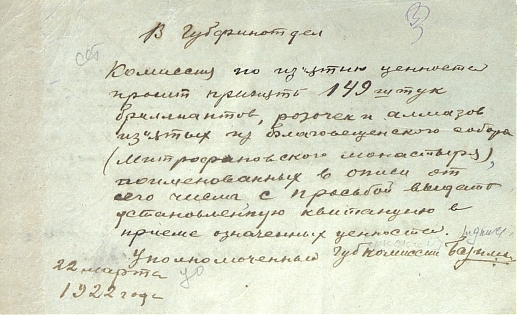 В Губфинотдел
3
Комиссия по изъятию ценности
просит принять 149 штук
бриллиантов, розочек и алмазов
изъятых из благовещенского собора
(Митрофановского монастыря),
поименованных в описи от
сего числа с просьбой выдать
установленную квитанцию в
приеме означенных ценности.
Уполномоченный губкомиссии
22 марта
1922 года